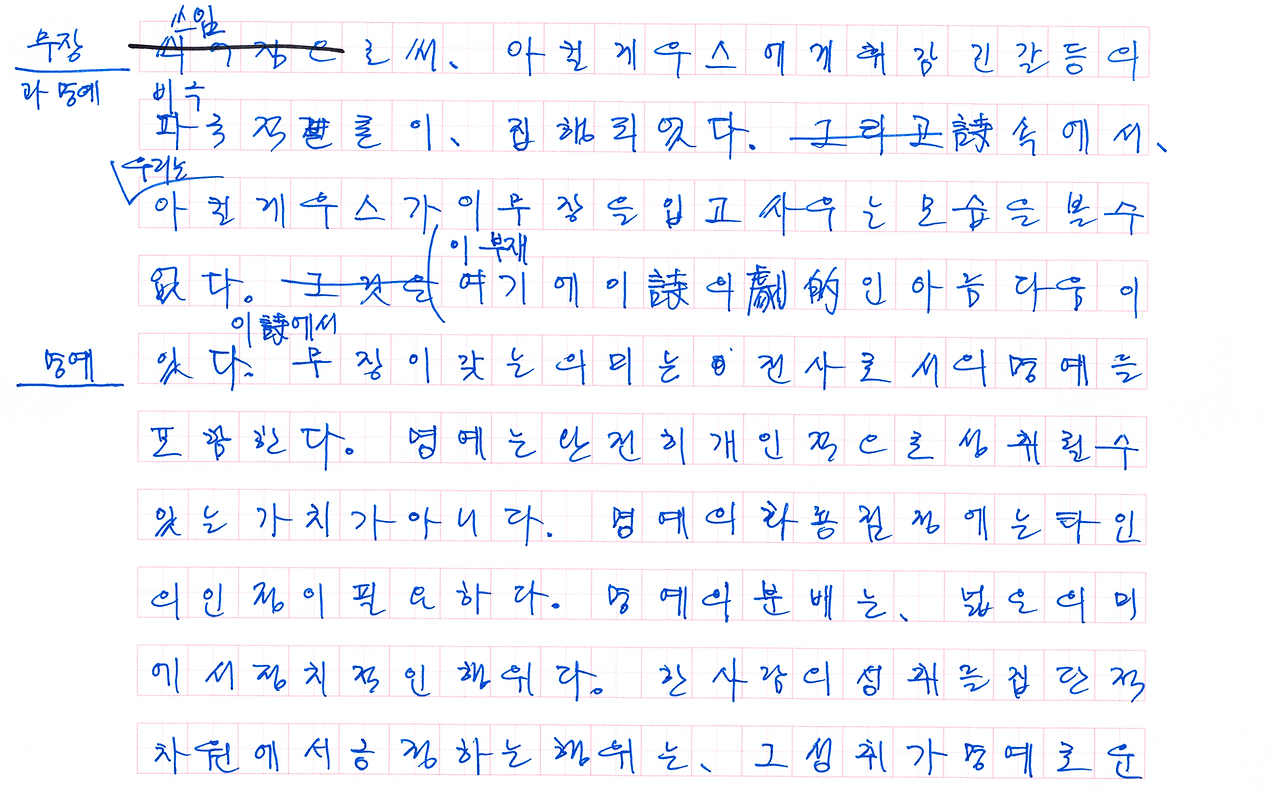 무장
과 명예
쓰임
으로써、 아킬레우스에게 취감긴갈등의
비극
파국적인 틀이、 집행되었다。 그리고 詩속에서、
우리는
아킬레우스가이무장을입고싸우는모습을볼수
이 부재
없다。 그것은 여기에이詩의劇的인아름다움이
이 詩에서
명예
있다。 무장이갖는의미는 전사로서의명예를
포함한다。 명예는완전히개인적으로성취될수
있는가치가아니다。 명예의 결정에는타인
의인정이필요하다。 명예의분배는、 넓은의미
에서정치적인행위다。 한사람의성취를집단적
차원에서긍정하는행위는、 그성취가명예로운